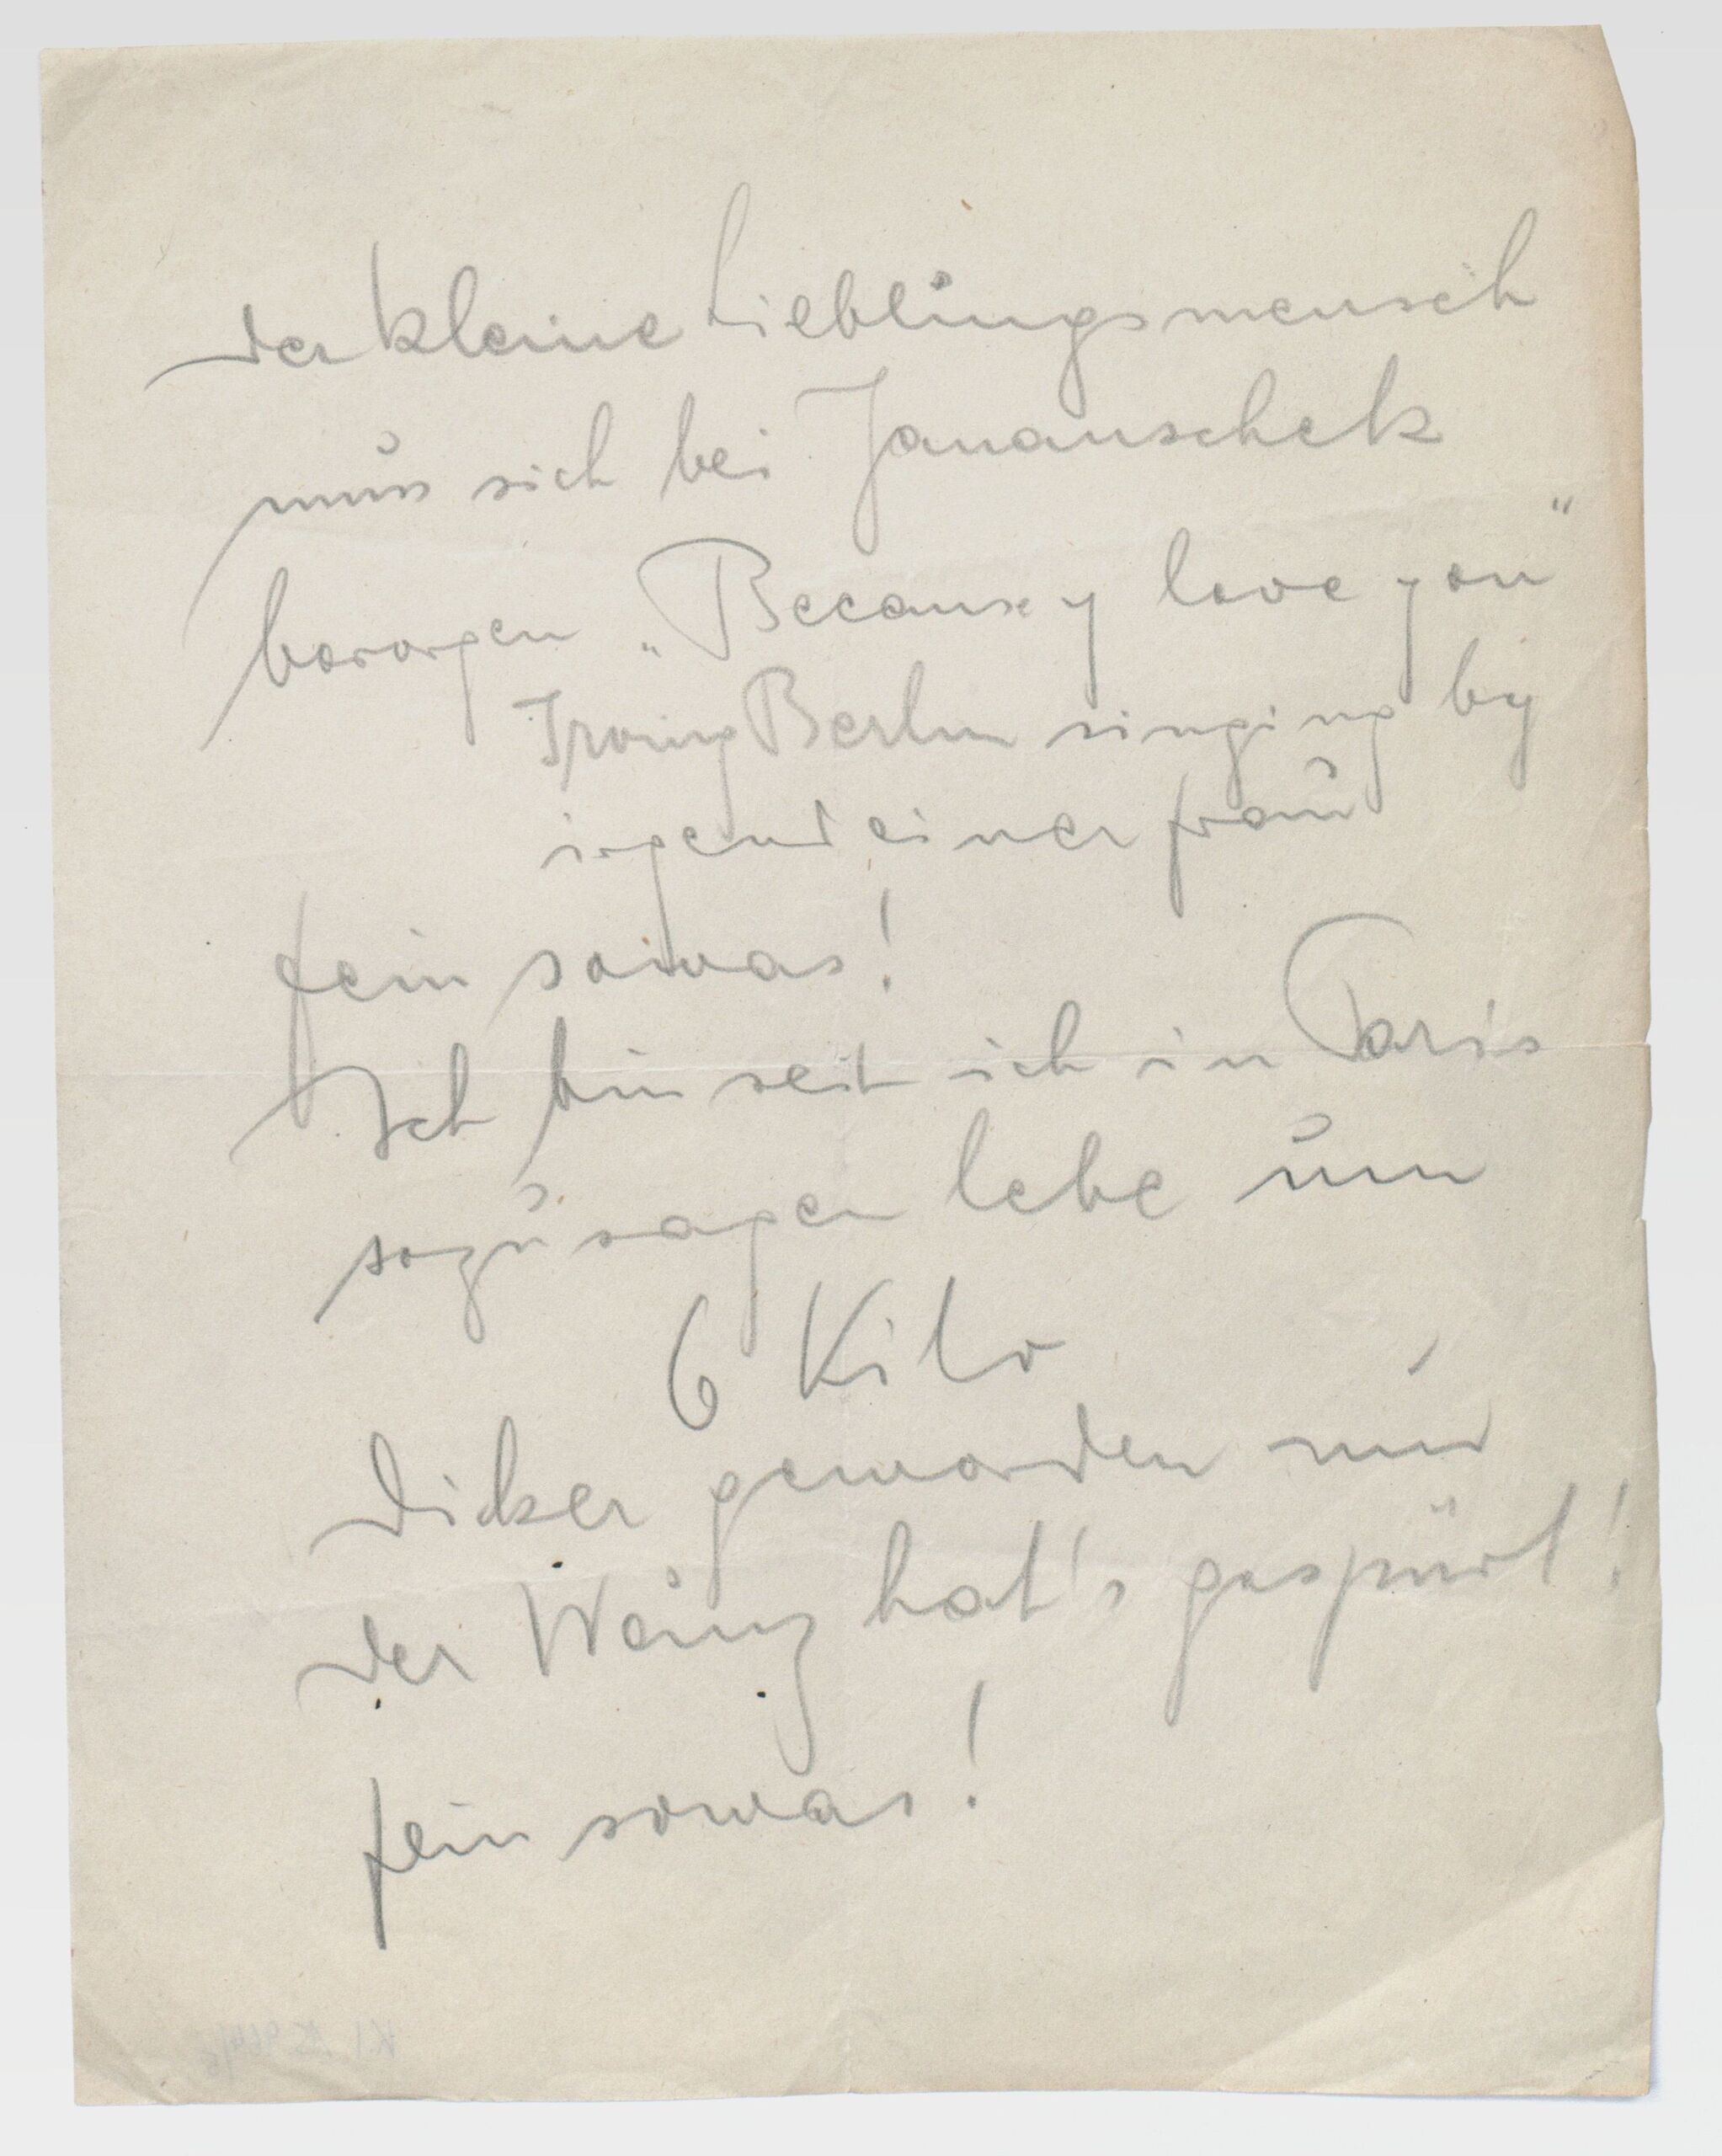 der kleine Lieblingsmensch
muss sich bei Jananschek
besorgen „Because y love you"
Irving Berlin singing by
irgend einer frau
fein sowas!
Ich bin seit ich in Paris
sozusagen lebe um
6 Kilo
dicker geworden und
der hat's gespürt!
fein sowas!